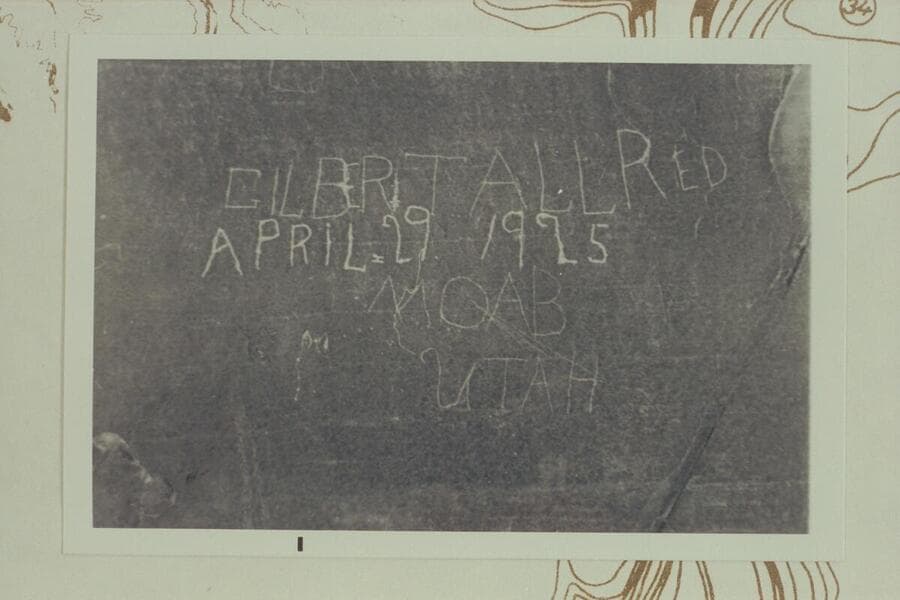 34
GILBERT ALLRED
APRIL-29 1925
MOAB
UTAH